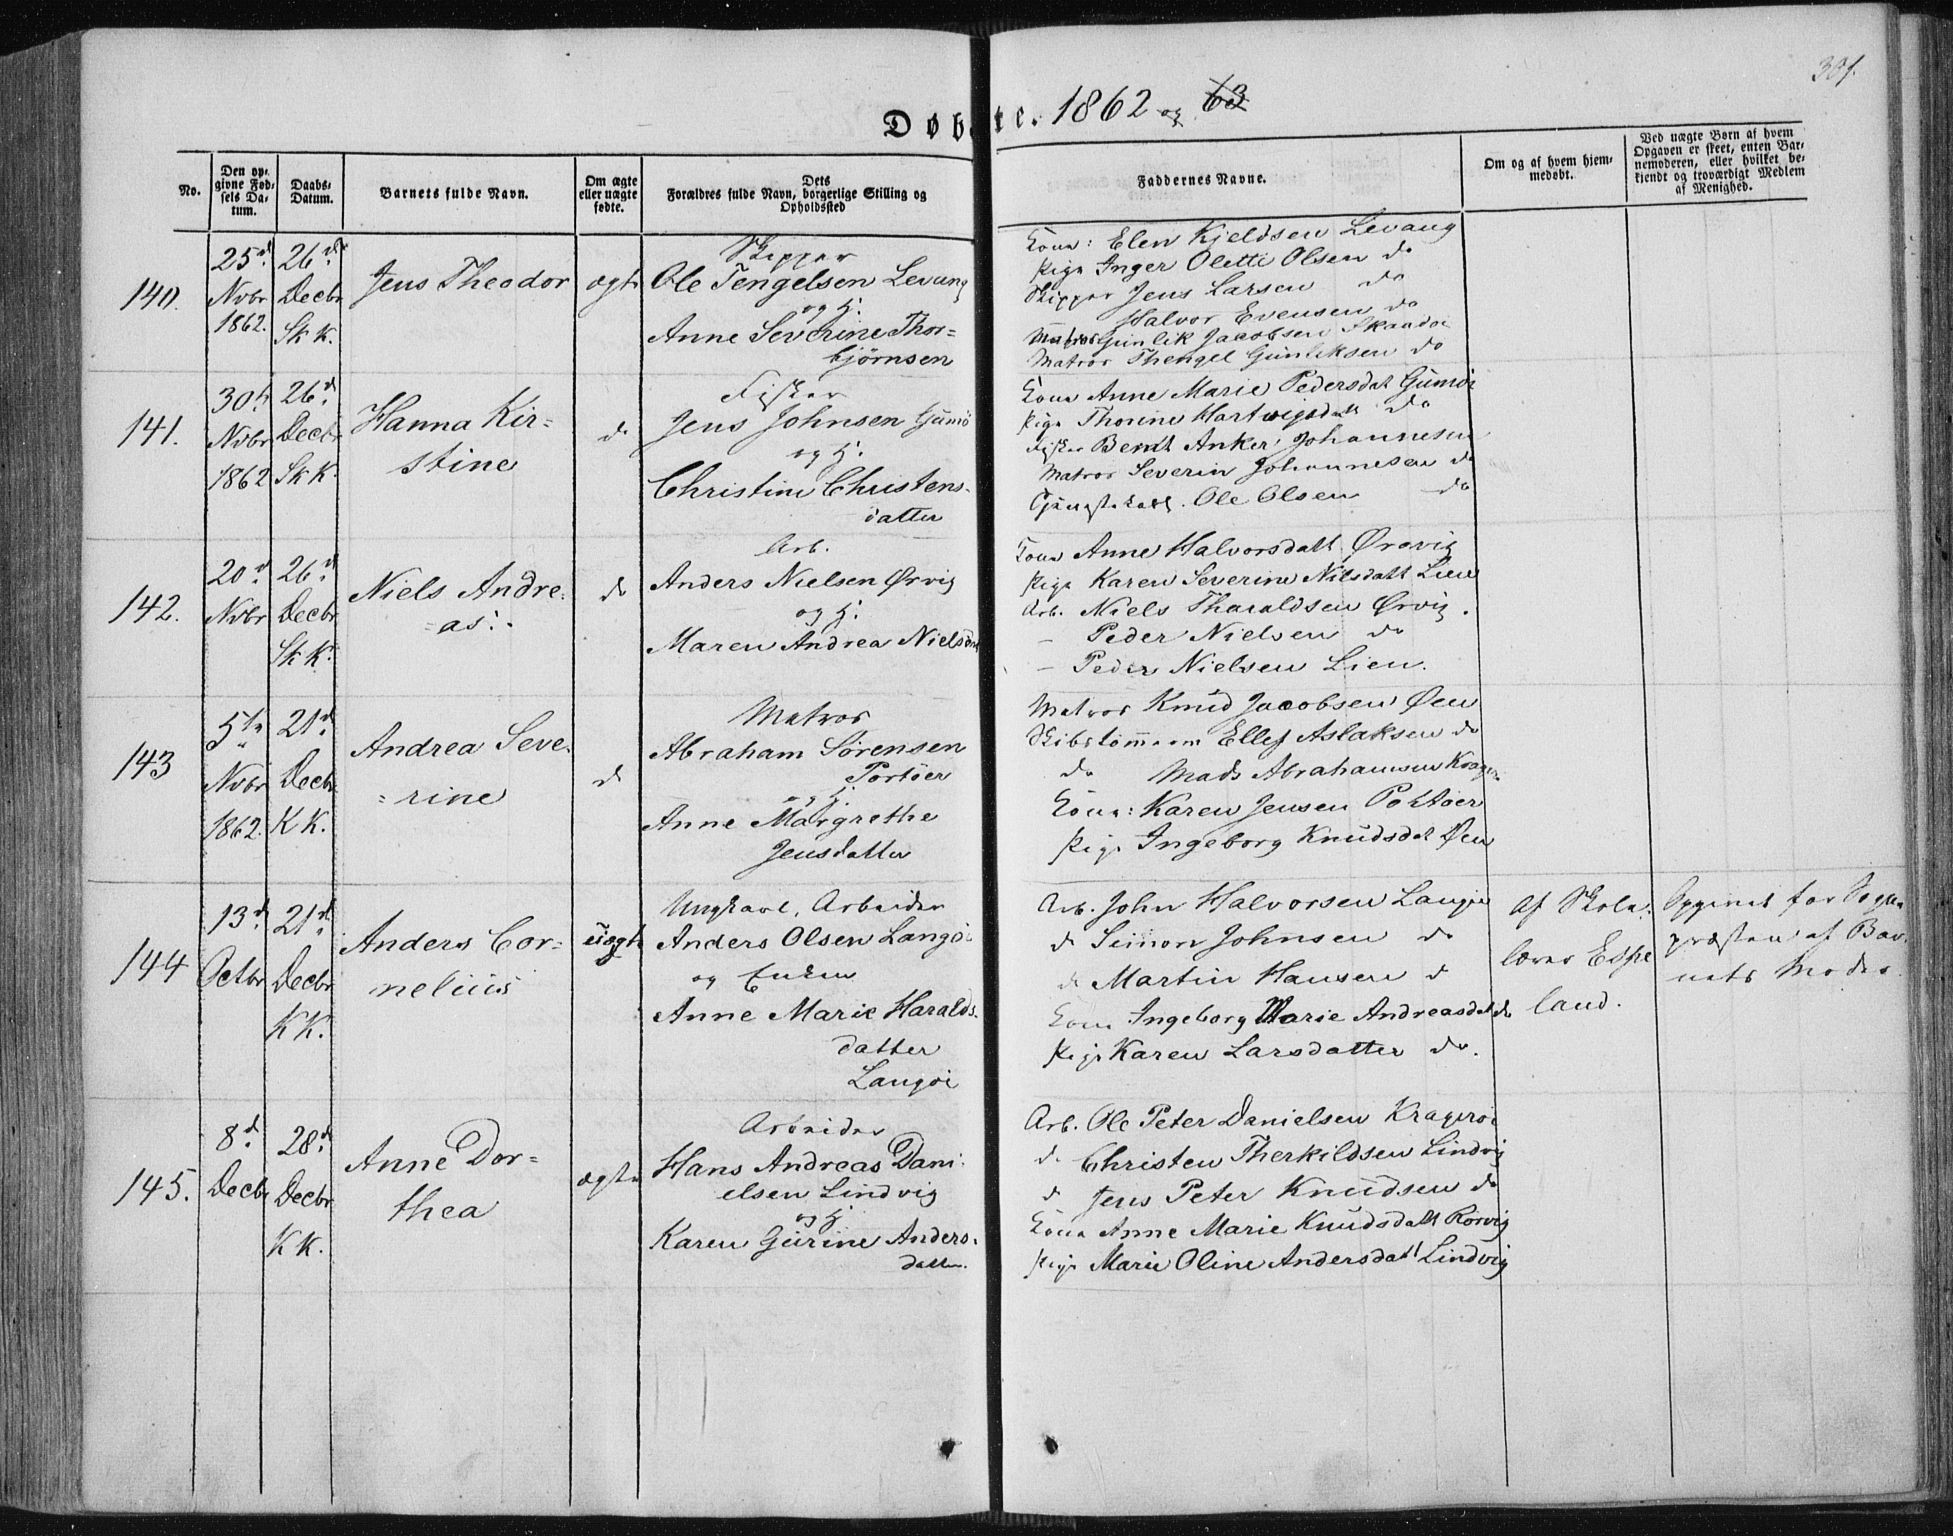 301.
Døbte. 1862 og 63
No.
Den op-
givne Fød-
sels Da-
tum.
Daabs-
Datum.
Barnets fulde Navn.
Om ægte
eller uægte
fødte.
Dets
Forældres fulde Navn, borgerlige Stilling og
Opholdssted
Faddernes Navne.
Om og af hvem hjem-
medøbt.
Ved uægte Børn af hvem
Opgaven er skeet, enten Bar-
nemoderen, eller hvilket be-
kjendt og troværdigt Medlem
af Menighed.
140.
25d.
Nvbr
1862.
26d.
Decbr
Sk K.
Jens Theodor
ægte
Skipper
Ole Tengelsen Levang
og H.
Anne Severine Thor=
bjørnsen
Kone: Elen Kjeldsen Levang
Pige Inger Olette Olsen do
Skipper Jens Larsen do
Halvor Evensen do
Matros Gunlik Jacobsen
Matros Thengel Gunliksen do
141.
30te
Nvbr
1862
26d.
Decbr
Sk K.
Hanna Kir=
stine
do
Fisker
Jens Johnsen Gumø
og H.
Christine Christens-
datter
Kone Anne Marie Pedersdat Gumøi
Pige Thorine Hartvigsdatt do
Fisker Berndt Anker Johannesen
Matros Severin Johannesen do
Tjenestekarl. Ole Olsen do
142.
20d.
Nvbr
26d.
Decbr
Sk K.
Niels Andre-
=as.
do
Arb.
Anders Nielsen Ørvig
og H.
Maren Andrea Nielsdat
Kone Anne Halvorsdatt Ørovig
Pige Karen Severine Nilsdatt Lien
Arb. Niels Tharaldsen Ørvig.
- Peder Nielsen do
- Peder Nielsen Lien.
143
5te
Nvbr
1862.
21d.
Decbr
K K.
Andrea Seve-
=rine
do
Matros
Abraham Sørensen
Portøer
og H.
Anne Margrethe
Jensdatter
Matros Knud Jacobsen Øen
Skibstømmerm Ellef Aslaksen do
do Mads Abrahamsen Kragerø
Kone: Karen Jensen Portøer
Pige Ingeborg Knudsdat Øen
144
13d.
Octbr
21d.
Decbr
K K.
Anders Cor=
nelius
uægte
Ungkarl, Arbeider
Anders Olsen Langøi
og Enken
Anne Marie Haralds-
datter
Langøi
Arb. John Halvorsen Langøi
do Simon Johnsen do
do Martin Hansen do
Kone Ingeborg Marie Andreasdat do
Pige Karen Larsdatter do.
Af Skole-
lærer Espe
land.
Opgivet for Sogne
præsten af Bar-
nets Moder.
145.
8d.
Decbr
28d.
Decbr
K K.
Anne Dor=
thea
ægte
Arbeider
Hans Andreas Dani-
elsen Lindvig
og H.
Karen Gurine Anders-
datter.
Arb. Ole Peter Danielsen Kragerøe
do Christen Therkildsen Lindvig
do Jens Peter Knudsen do
Kone Anne Marie Knudsdatt Rørvig
Pige Marie Oline Andersdatt Lindvig